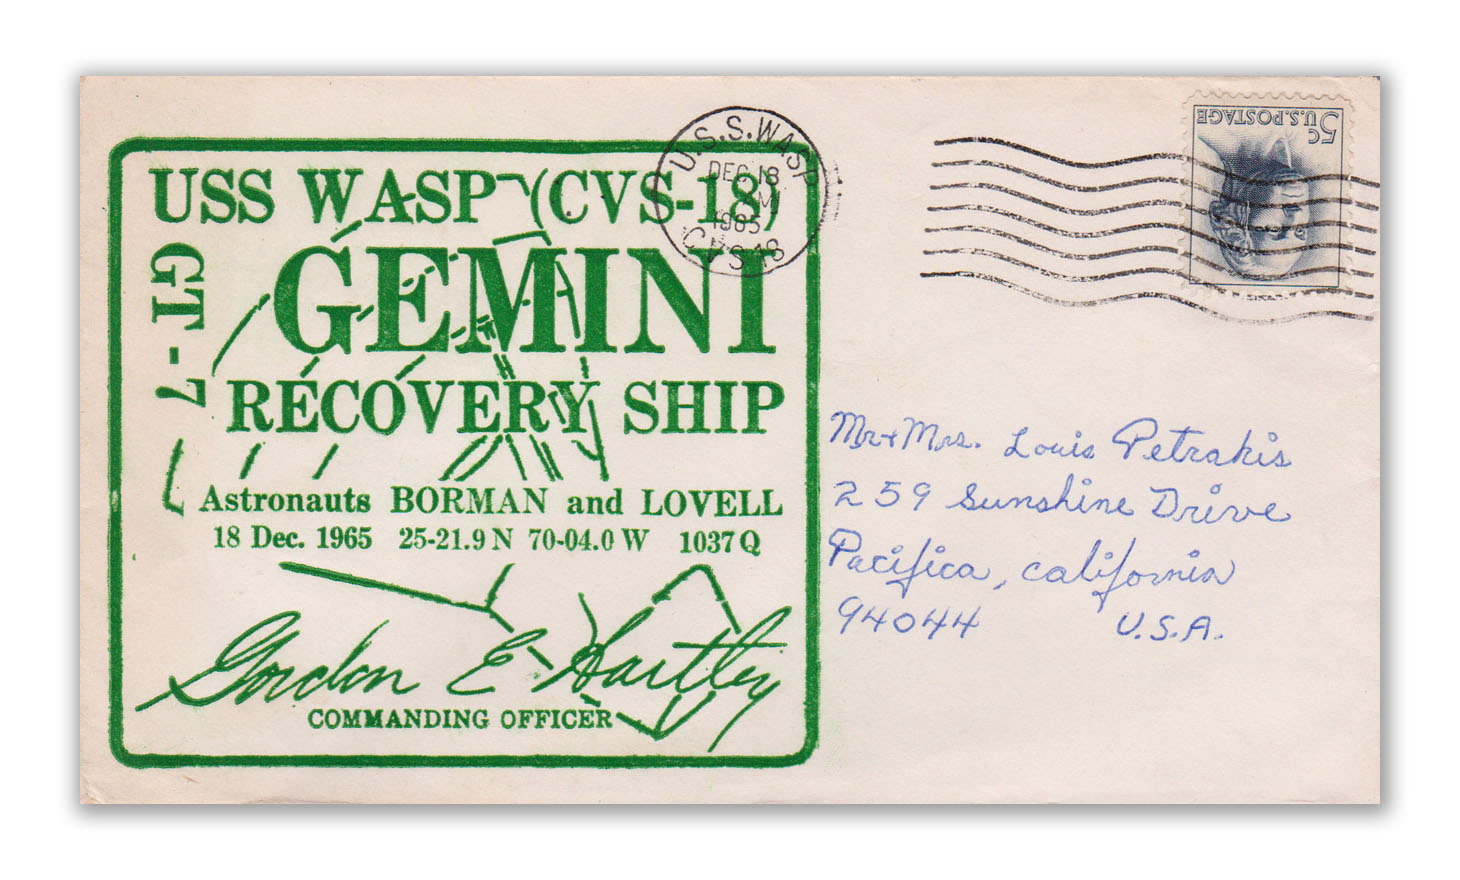 USS WASP (CVS-18)
GT-7
GEMINI
RECOVERY SHIP
Astronauts BORMAN and LOVELL
18 Dec. 1965 25-21.9 N 70-04.0 W 1037 Q
Gordon E Hartley
COMMANDING OFFICER
U.S.S. WASP
DEC 18
M
1965
CVS-18
5c
U.S. POSTAGE
Mr + Mrs. Louis Petrakis
259 Sunshine Drive
Pacifica, California
94044 U.S.A.